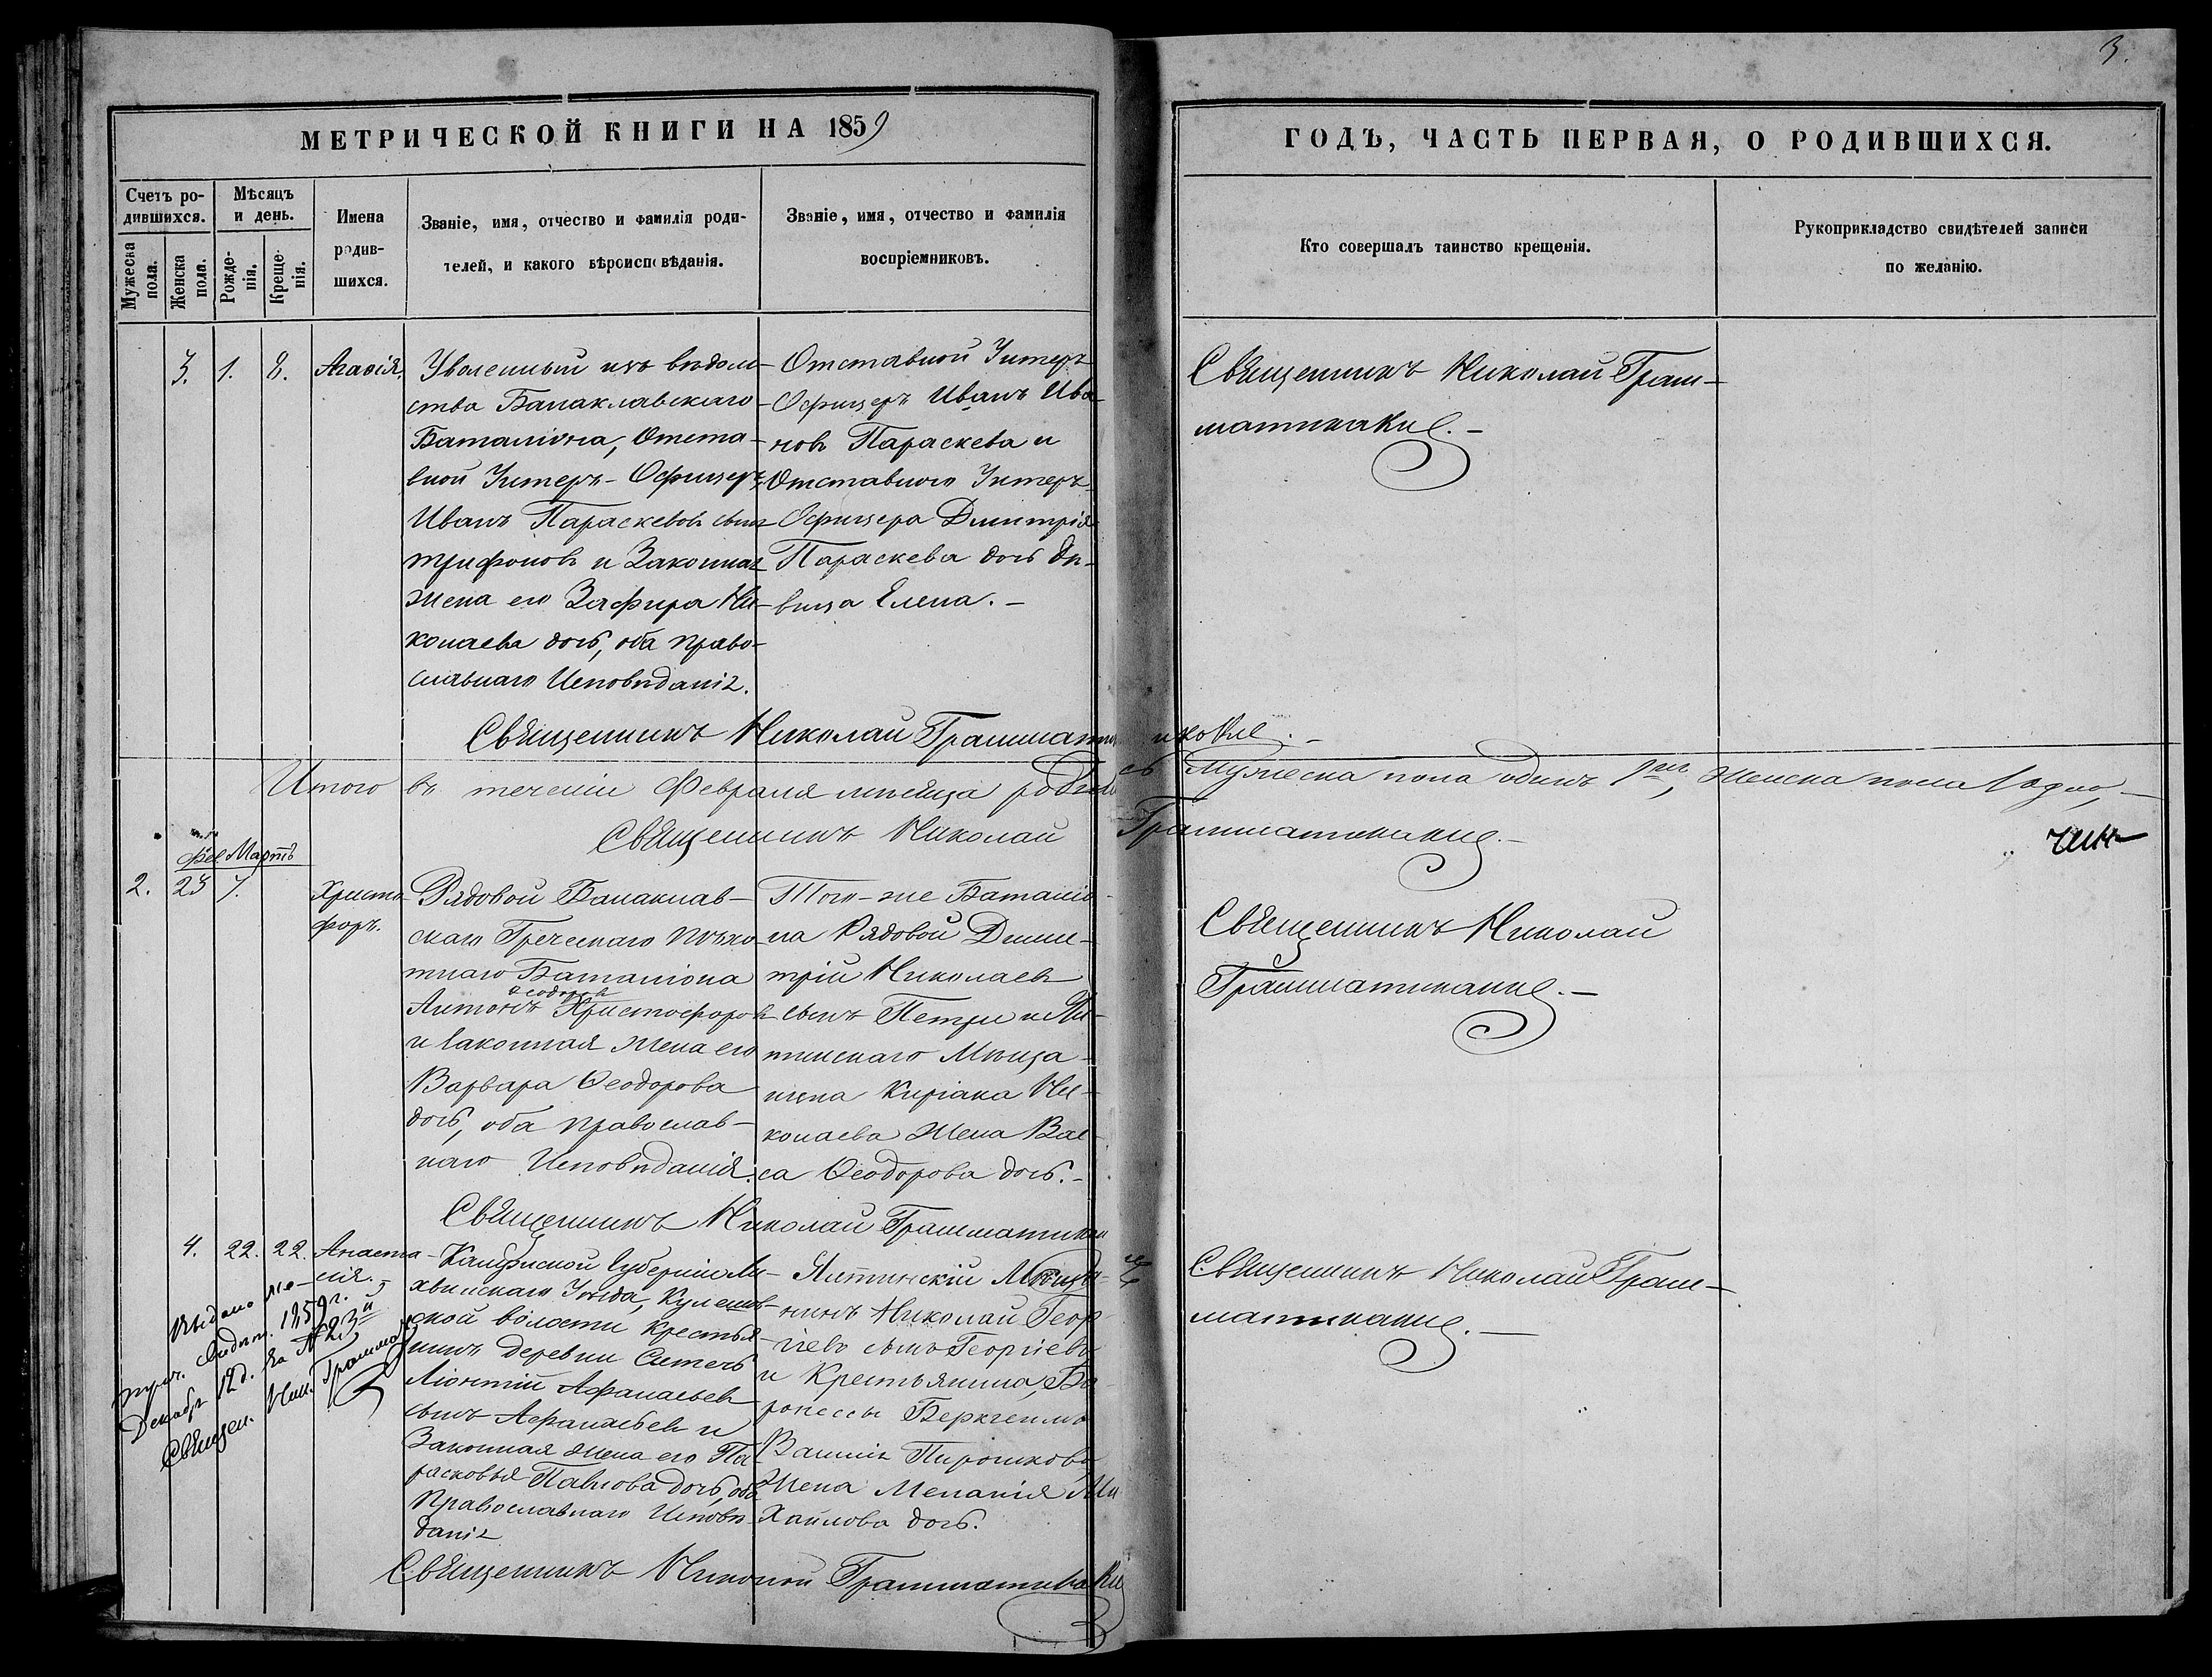 3.
МЕТРИЧЕСКОЙ КНИГИ НА 1859
ГОДЪ, ЧАСТЬ ПЕРВАЯ, О РОДИВШИХСЯ.
Счетъ ро-
дившихся.
Мужеска
пола.
Женска
пола.
Мѣсяцъ
и день.
Рожде-
нія.
Креще-
нія.
Имена
родив-
шихся.
Званіе, имя, отчество и фамилія роди-
телей, и какого вѣроисповѣданія.
Званіе, имя, отчество и фамилія
воспріемниковъ.
Кто совершалъ таинство крещенія.
Рукоприкладство свидѣтелей записи
по желанію.
3. 1. 8.
Агаѳія.
Уволенный изъ вѣдом-
ства Балаклавскаго
Баталіона, Отста-
вной Унтеръ-Офицеръ
Иванъ Параскевовъ сынъ
Трифоновъ и Законная
жена его Зафира Ни-
колаева дочь, оба право-
славнаго Исповѣданія.
Отставной Унтеръ-
Офицеръ Иванъ Ива-
новъ Параскева и
Отставного Унтеръ-
Офицера Дмитрія
Параскева дочь дѣ-
вица Елена.-
Священникъ Николай Грам-
матикаки.-
Священникъ Николай Грамматикаки.-
Итого въ теченіи Февраля мѣсяца родилось Мужеска пола одинъ 1, Женска пола 1 одно,-
Священникъ Николай Грамматикаки.-
Фев. Мартъ
2. 23 7.
Христо-
форъ.
Рядовой Балаклав-
скаго Греческаго пѣхо-
тнаго Баталіона
Ѳеодоровъ
Антонъ Христофоровъ
и законная жена его
Варвара Ѳеодорова
дочь, оба православ-
наго Исповѣданія.
Того-же Баталіо-
на Рядовой Дими-
трій Николаевъ
сынъ Петри и Ял-
тинскаго Мѣща-
нина Киріака Ни-
колаева жена Вас-
са Ѳеодорова дочь.-
Священникъ Николай
Грамматикаки.-
Священникъ Николай Грамматикаки
4. 22. 22.
Анаста-
сія.
Калужской Губерніи Ли-
хвинскаго Уѣзда, Кулешов-
ской волости Крестья-
нинъ деревни
Афанасьевъ
сынъ Афанасьевъ и
Законная жена его Па-
расковья Павлова дочь, оба
Православнаго Исповѣ-
данія
Ялтинскій Мѣща-
нинъ Николай Геор-
гіевъ сынъ Георгіевъ
и Крестьянина, Ба-
ронессы Беркгеймъ
Жена Меланія Ми-
хайлова дочь.
Священникъ Николай Грам-
матикаки.-
Выдано ме-
трич. свидѣт. 1859 г.
Декабр 12 д. за № 23й
Священ. Ник. Граммат
Священникъ Николай Грамматикаки